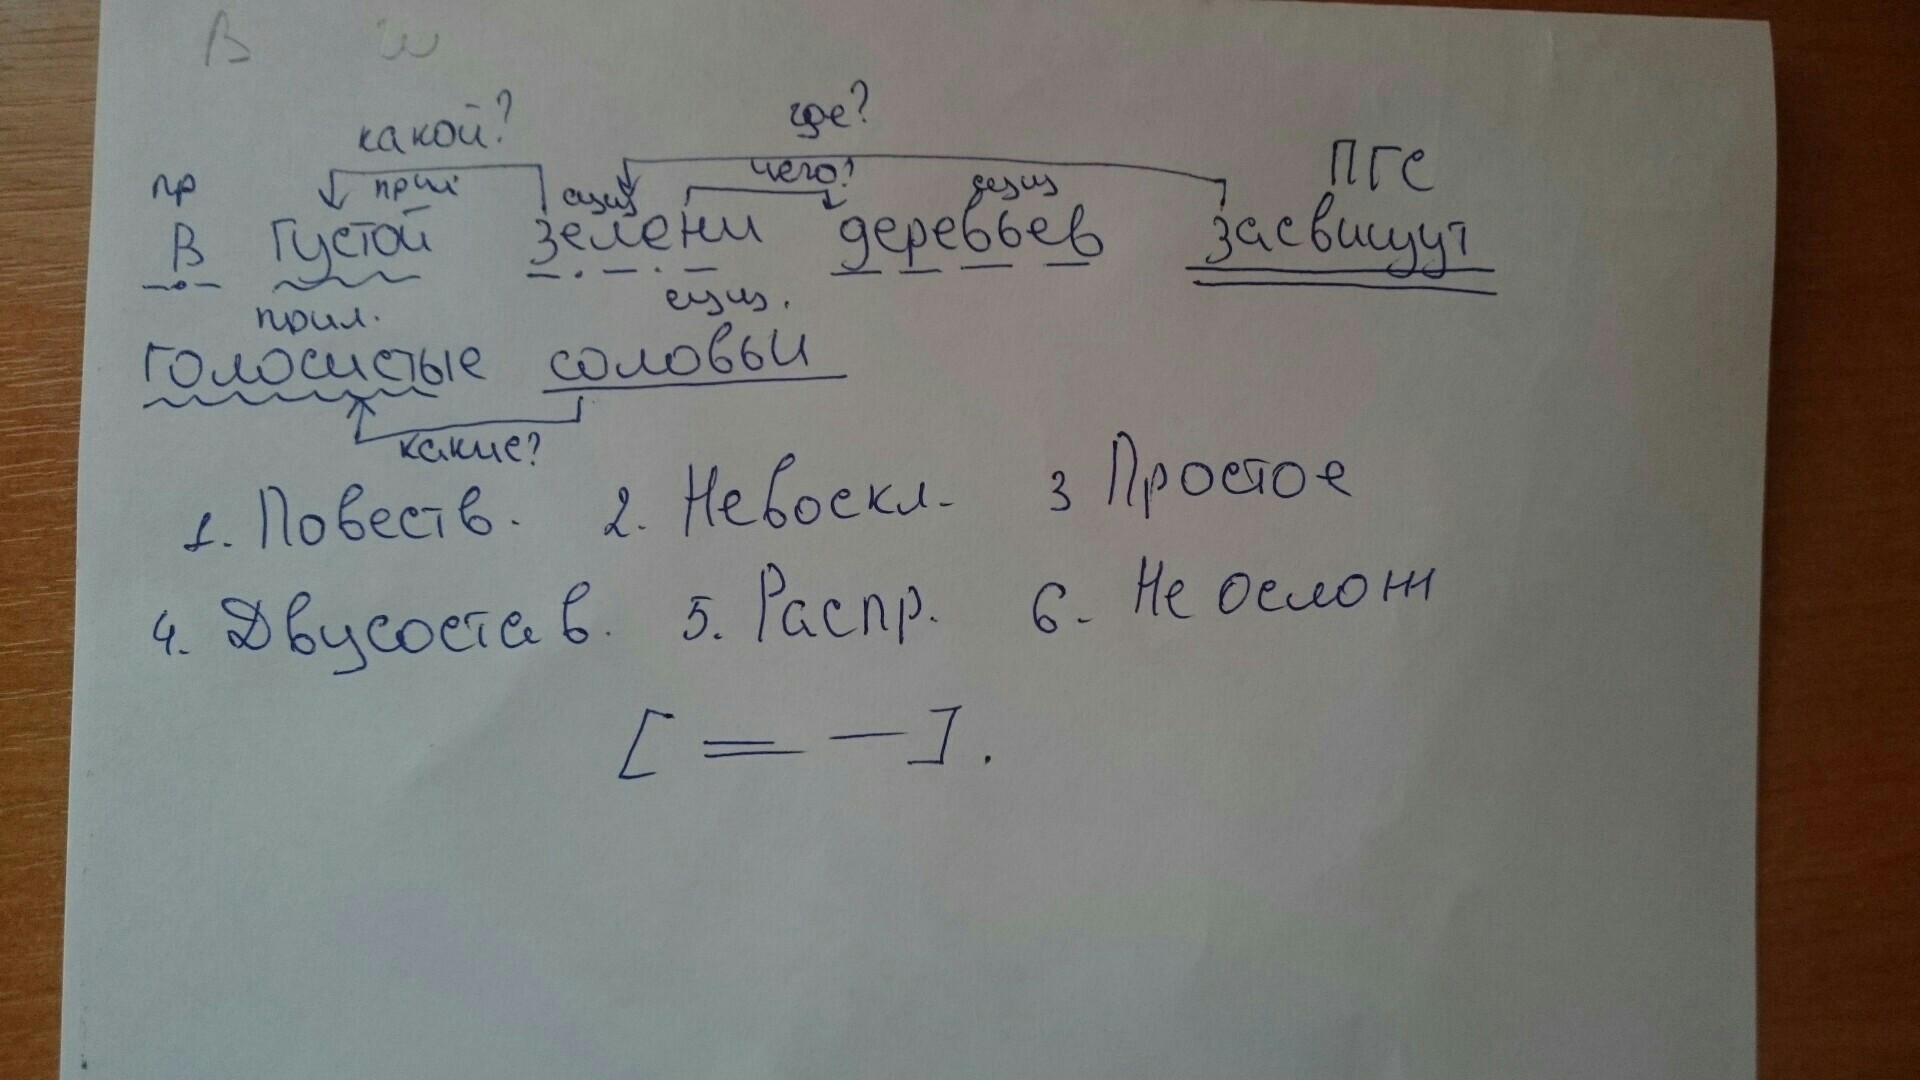 В ш
какой? где?
пр прил сущ чего? сущ ПГС
В густой зелени деревьев засвищут
прил. сущ.
голосистые соловьи
какие?
1. Повеств. 2. Невоскл. 3 Простое
4. Двусостав. 5. Распр. 6. Не ослож
[ = — ].